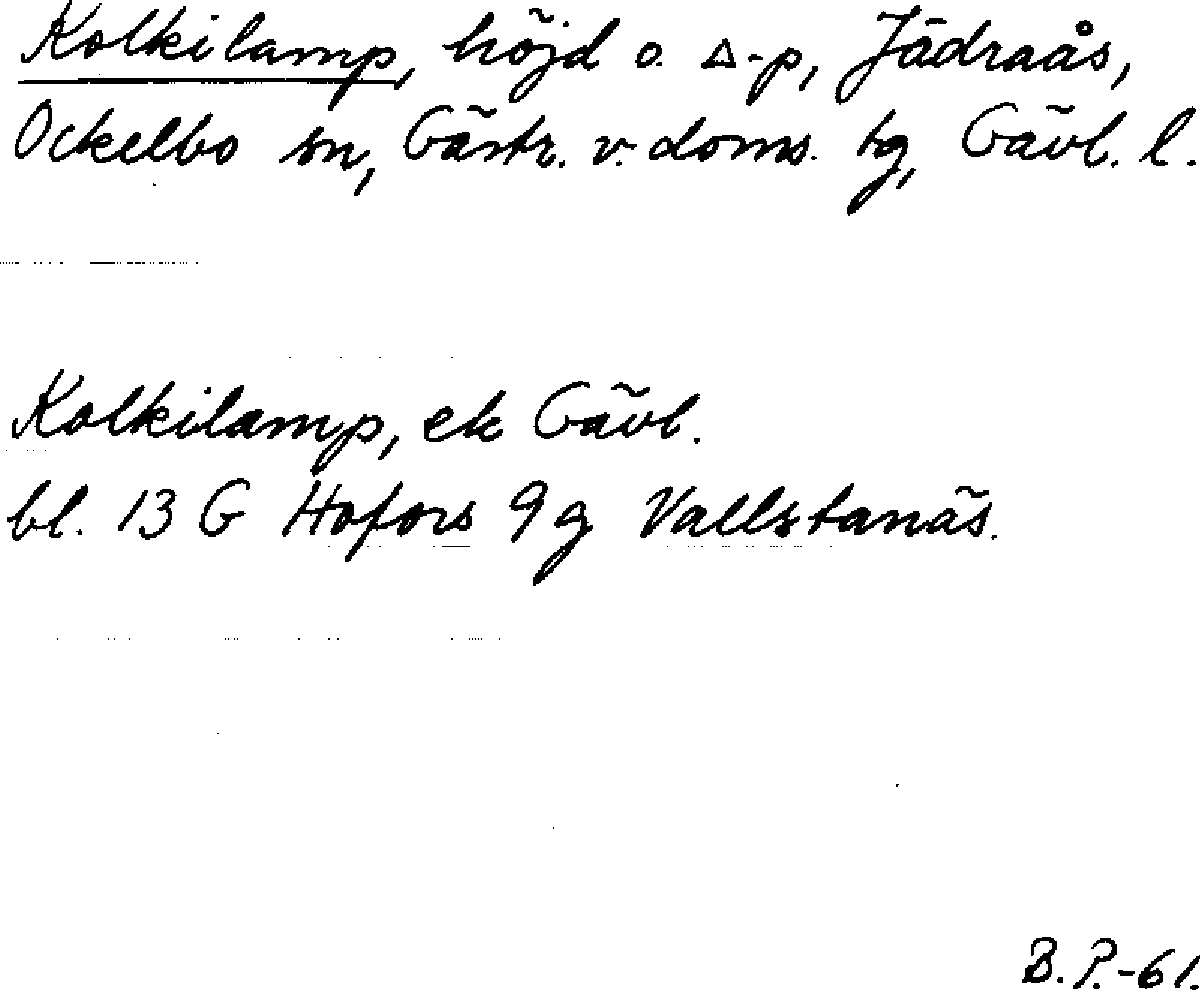 Kolkilamp, höjd o. Δ-p, Jädraås,
Ockelbo sn, Gästr. v. doms. tg, Gävl. l.
Kolkilamp, ek Gävl.
bl. 13 G Hofors 9 g Vallstanäs.
B.P.-61.